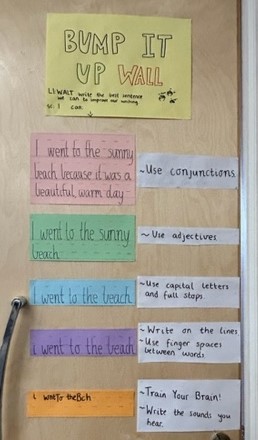 BUMP IT
UP WALL
LI: WALT write the best sentence
we can to improve our writing.
I can
I went to the sunny
beach because it was a
beautiful, warm day.
~Use conjunctions.
I went to the sunny
beach.
~Use adjectives.
I went to the beach.
~Use capital letters
and full stops.
i went to the beach
~Write on the lines.
~Use finger spaces
between words.
i wentTo theBch
~Train Your Brain!
~Write the sounds you
hear.